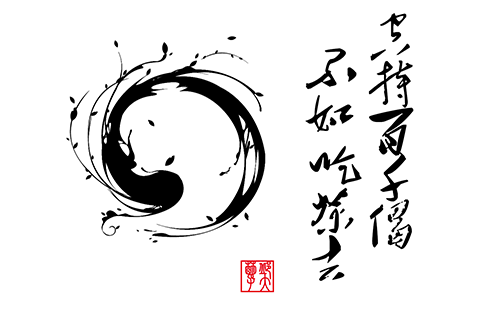 空持百千偈
不如吃茶去